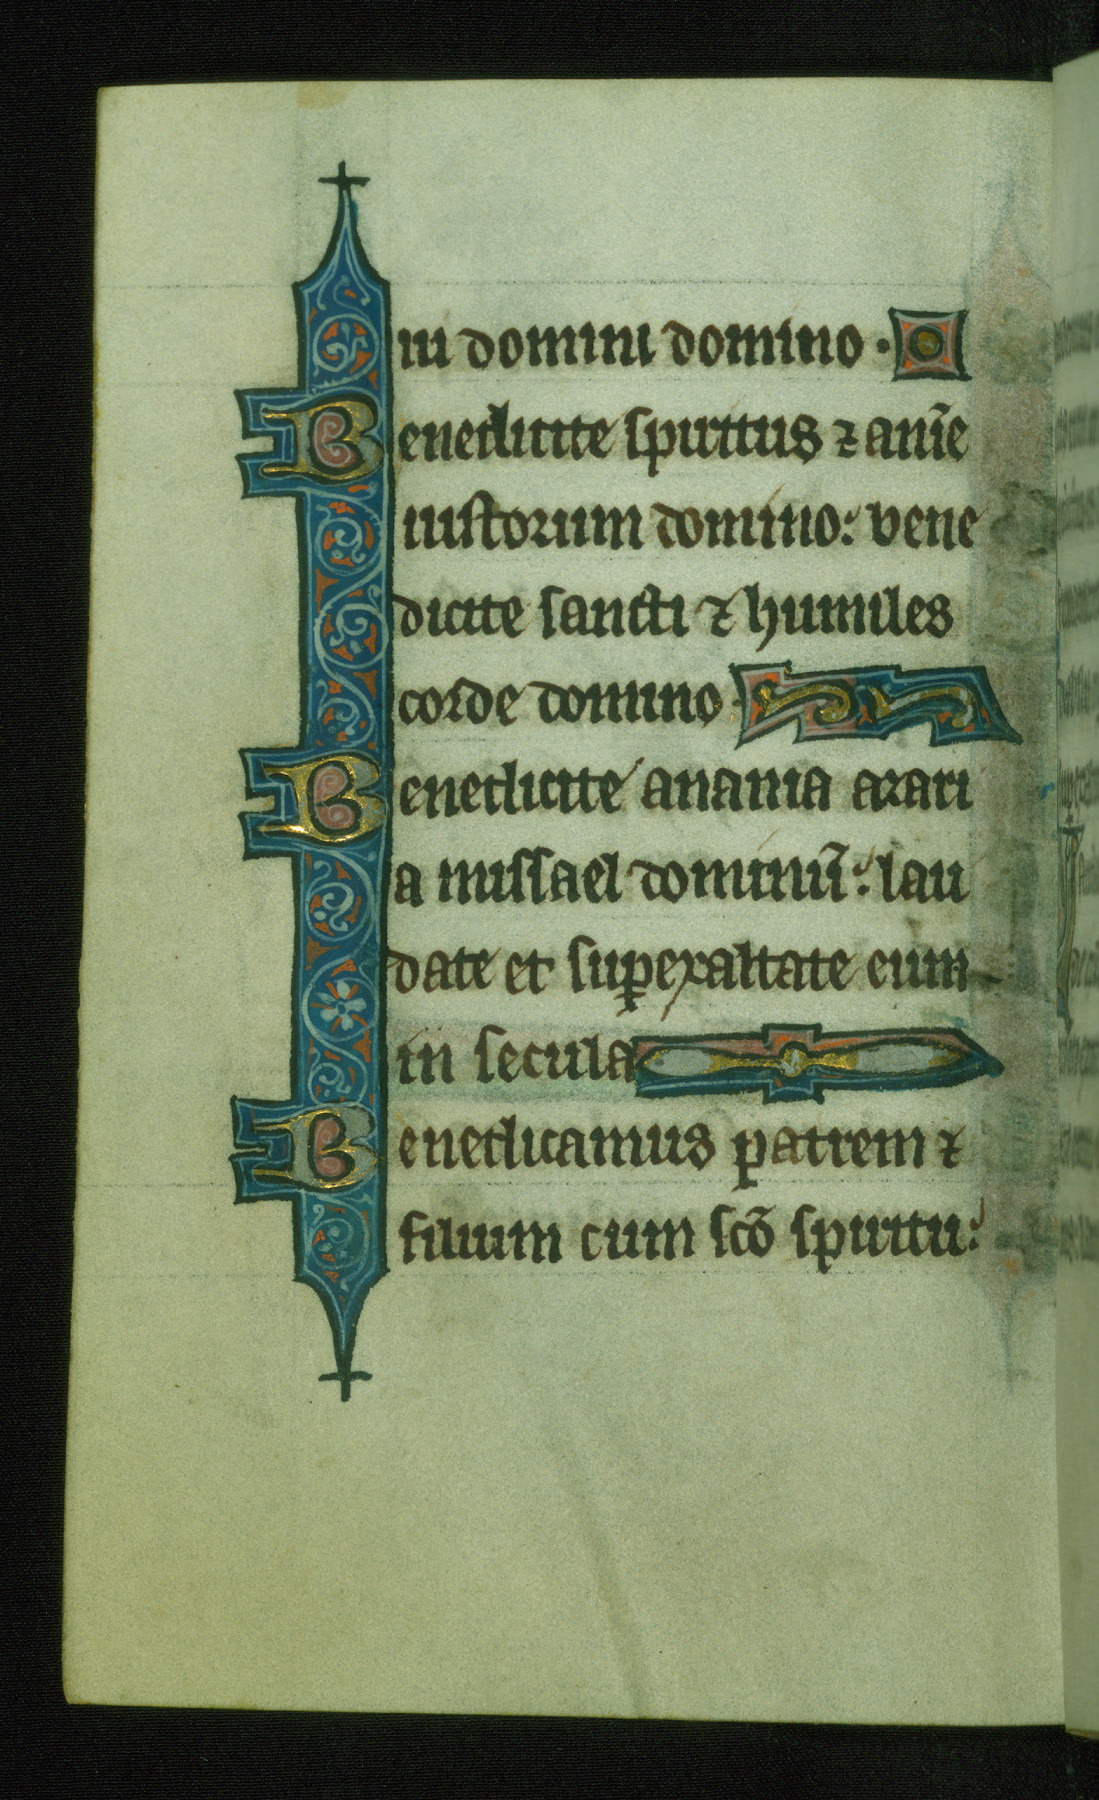 ui domini domino ·
Benedicite spiritus ⁊ anīe
iustorum domino: bene
dicite sancti ⁊ humiles
corde domino ·
Benedicite anania azari
a missael dominū: lau
date et suꝑexaltate eum
in secula
Benedicamus patrem ⁊
filium cum sc̄o spiritu: